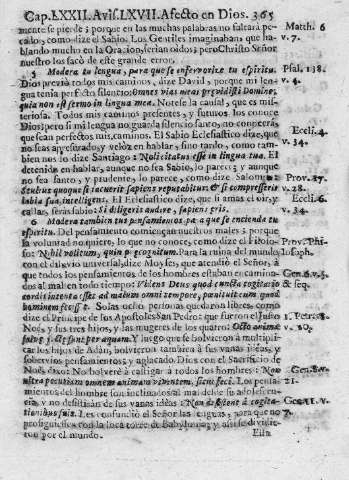 Cap. LXXII. Avis. LXVII. Afecto en Dios. 365
mente se pierde; porque en las muchas palabras no faltara pe-
cado, como dize el Sabio. Los Gentiles imaginaban que ha-
blando mucho en la Oracion, serian oidos; pero Christo Señor
nuestro los sacò de este grande error.
Matth. 6
v. 7.
5 Modera tu lengua, para que se enfervorize tu espiritu.
Dios previò todos mis caminos, dize David; porque mi len-
gua tenia perfecto silencio: Omnes vias meas prævidisti Domine,
quia non est sermo in lingua mea. Notese la causal, que es mis-
teriosa. Todos mis caminos presentes, y futuros los conoce
Dios; pero si mi lengua no guarda silencio santo, no concederà,
que sean perfectos mis caminos. El Sabio Eclesiastico dize, que
no seas apressurado, y veloz en hablar, sino tardo, como tam-
bien nos lo dize Santiago: Noli citatus esse in lingua tua. El
detenido en hablar, aunque no sea Sabio, lo parece; y aunque
no sea santo, y prudente, lo parece, como dize Salomon:
Stultus quoque si tacuerit sapiens reputabitur: & si compresserit
labia sua, intelligens. El Eclesiastico dize, que si amas el oir, y
callar, seràs sabio: Si diligeris audire, sapiens eris.
Psal. 138.
v. 4.
Eccli. 4.
v. 34.
Prov. 17.
v. 28.
Eccli. 6.
v. 34.
6 Modera tambien tus pensamientos, para que se encienda tu
espiritu. Del pensamiento comiençan nuestros males; porque
la voluntad no quiere, lo que no conoce, como dize el Filoso-
fo: Nihil volitum, quin præcognitum. Para la ruina del mundo
con el diluvio universal, dize Moyses, que atendiò el Señor, à
que todos los pensamientos de los hombres estaban encamina-
dos al mal en todo tiempo: Videns Deus quod cuncta cogitatio
cordis intenta esset ad malum omni tempore, pœnituit eum quod
hominem fecisset. Solas ocho personas quedaron libres, como
dize el Principe de sus Apostoles San Pedro; que fueron el Justo
Noès, y sus tres hijos, y las mugeres de los quatro: Octo animæ
salvæ factæ sunt per aquam. Y luego que se bolvieron à multipli-
car los hijos de Adàn, bolvieron tambien à sus vanas ideas, y
sobervios pensamientos; y aplacado Dios con el Sacrificio de
Noès, dixo: No bolverè à castigar à todos los hombres: Non
ultra percutiam omnem animam viventem, sicut feci. Los pensa-
mientos del hombre son inclinados al mal desde su adolescen-
cia, y no desistiràn de sus vanas ideas: Non desistent à cogita-
tionibus suis. Les confundiò el Señor las lenguas, para que no
prosiguiessen con la loca torre de Babylonia; y assi se dividie-
ron por el mundo.
Prov. Phi-
losoph.
Gen. 6. v. 5.
& seq.
1. Petr. 3.
v. 20.
Gen. 8. v.
21.
Gen. 11. v.
7.